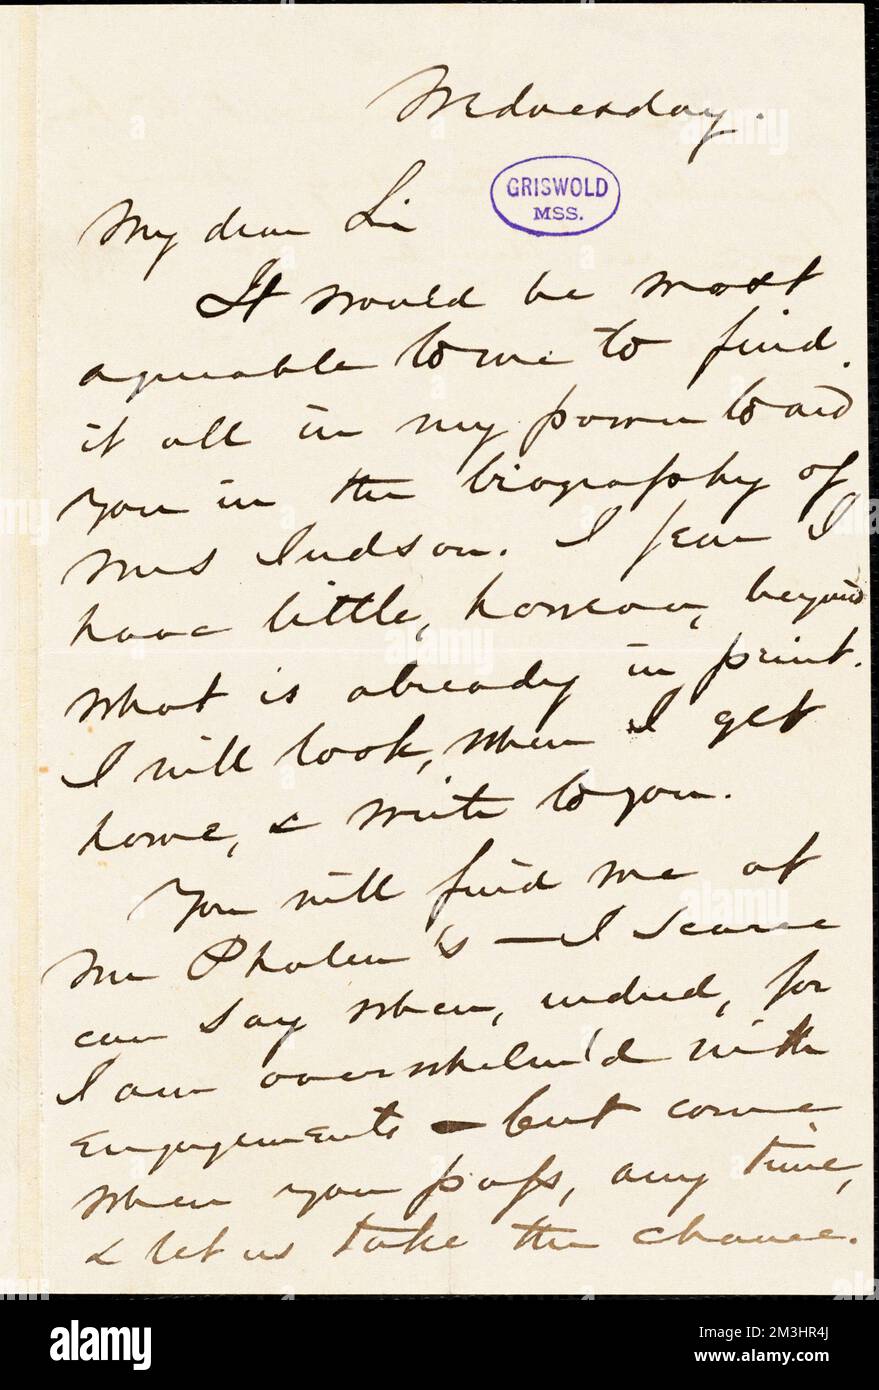 Wednesday.
My dear Sir
GRISWOLD
MSS.
It would be most
agreeable to me to find
it all in my power to aid
you in the biography of
Mrs Judson. I fear I
have little, however, beyond
what is already in print.
I will look, when I get
home, & write to you.
You will find me at
Mr Phalen's — I scarce
can say when, indeed, for
I am overwhelm'd with
engagements — but come
when you pass, any time,
& let us take the chance.
alamy
Image ID: 2M3HR4J
www.alamy.com